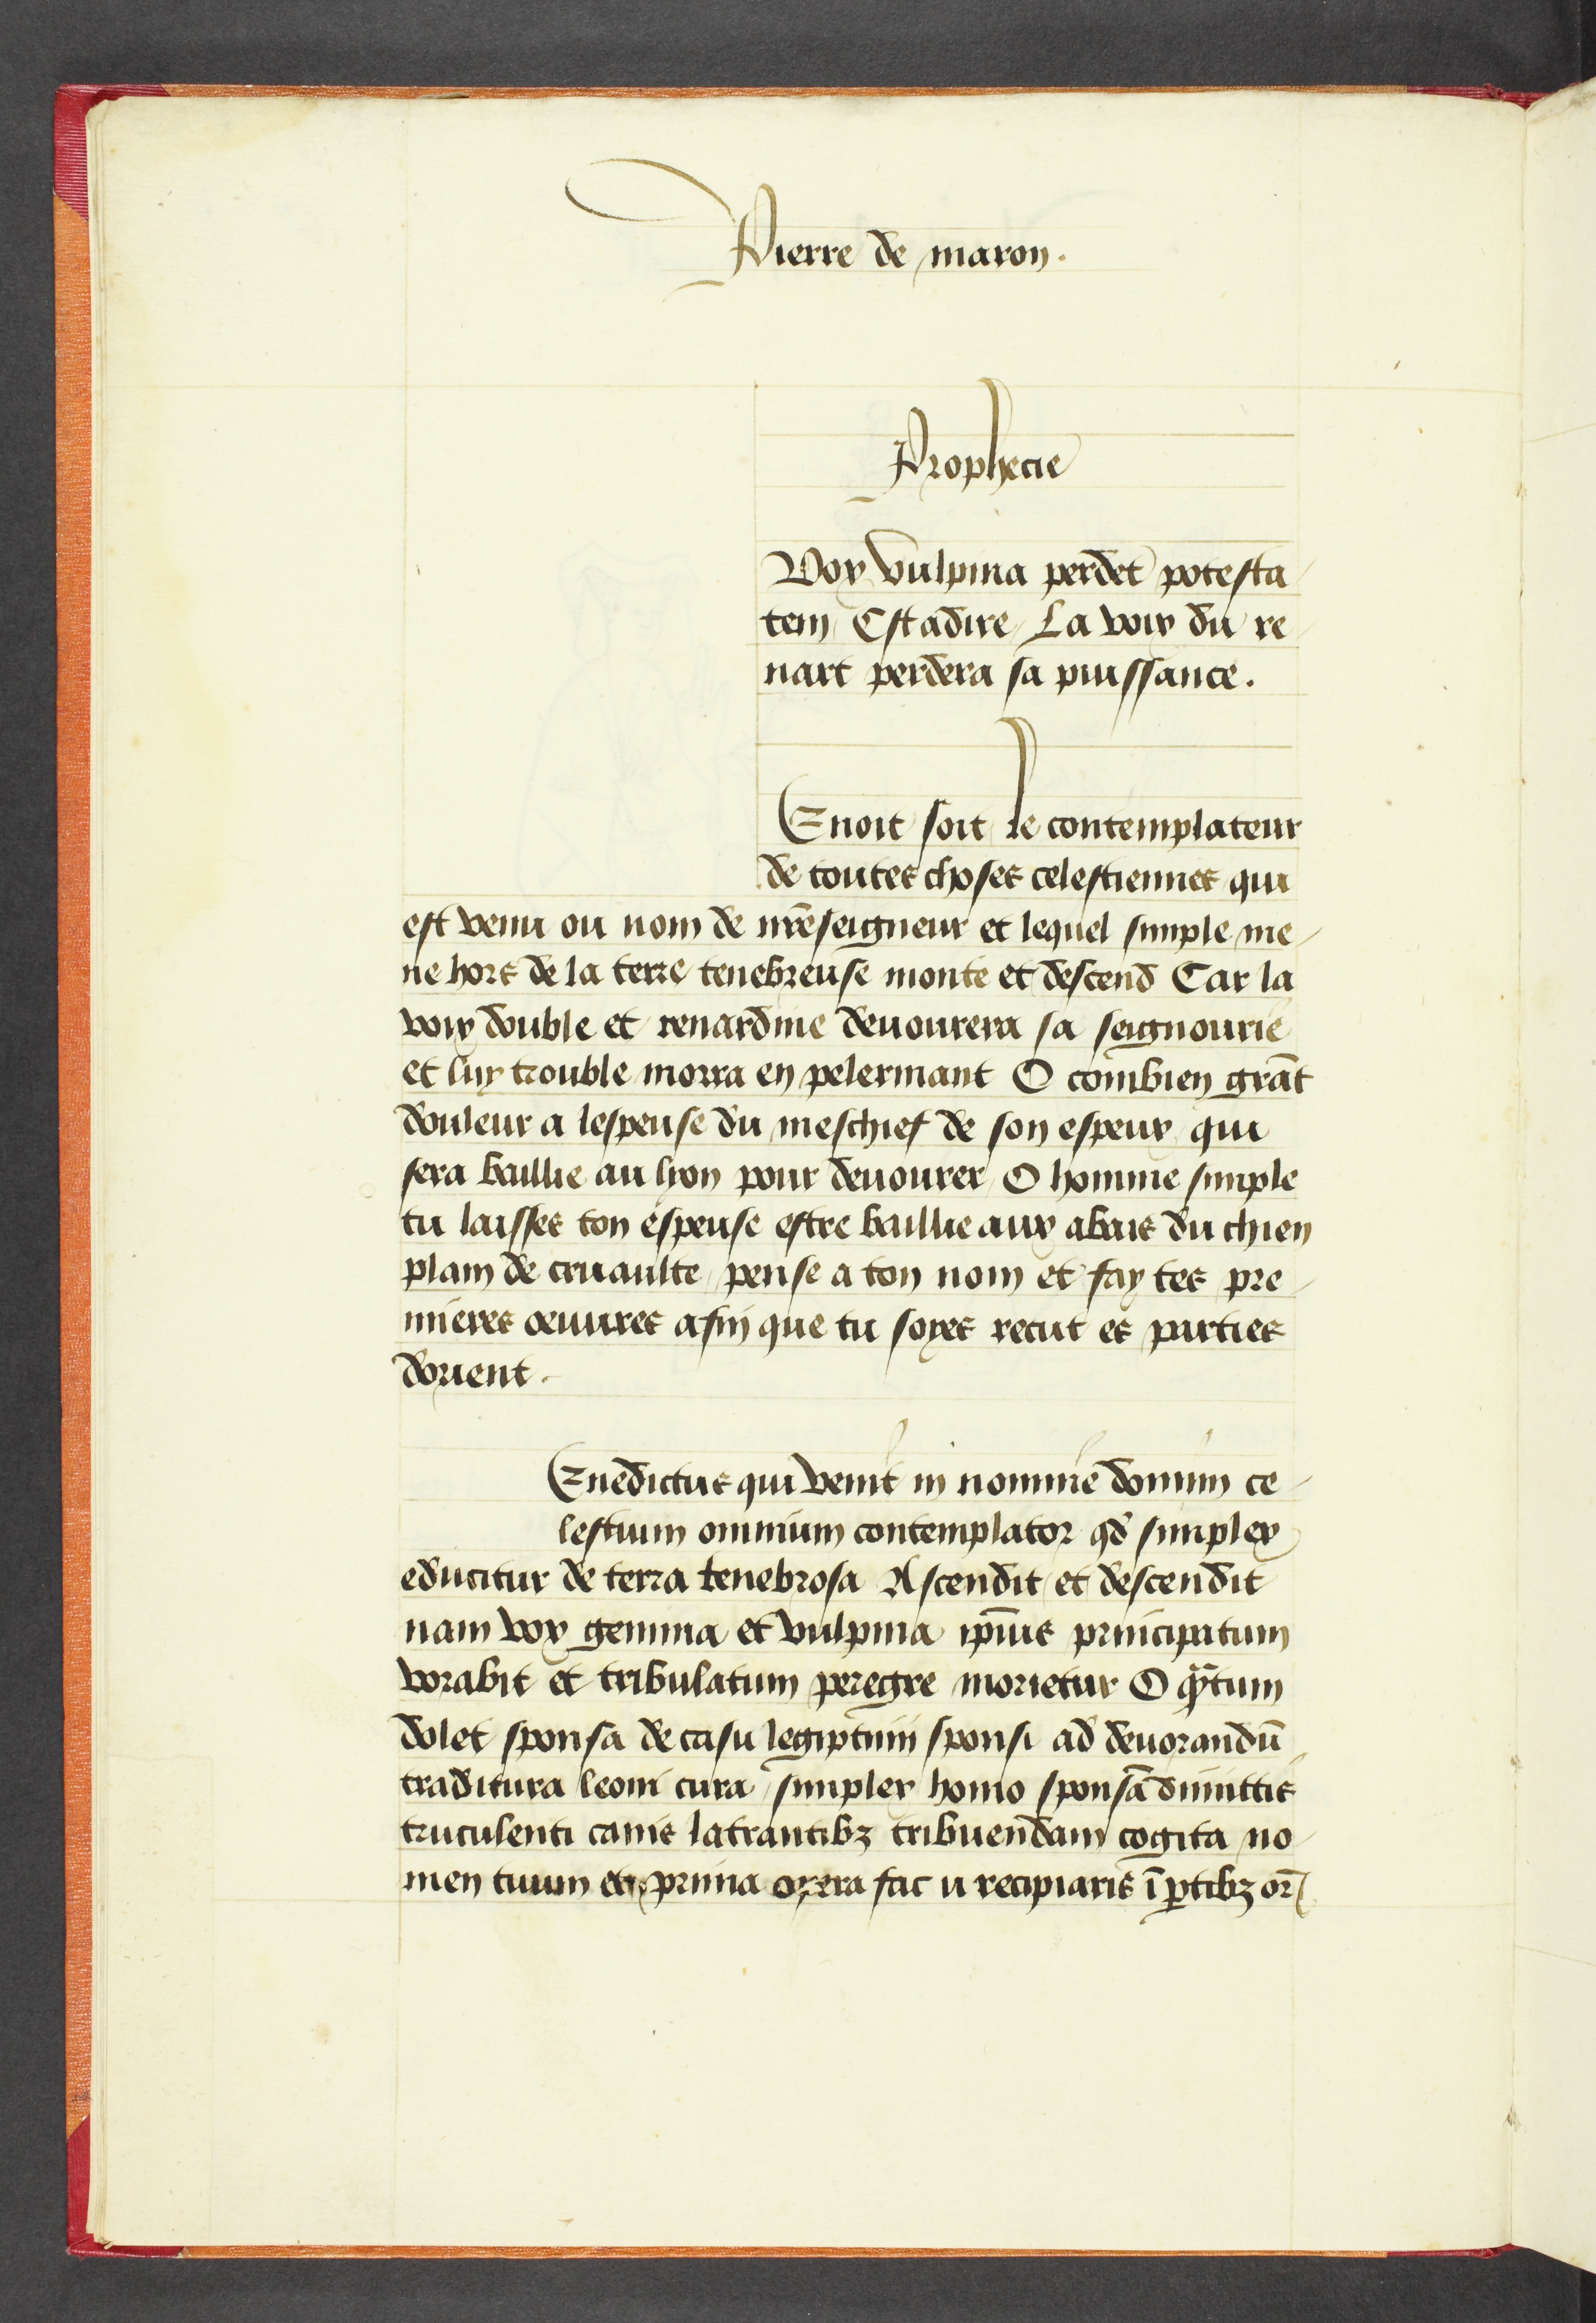 Pierre de maron.
Prophecie
Vox vulpina perdet potesta
tem Estadire La voix du re
nart perdera sa puissance.
Enoit soit le contemplateur
de toutes choses celestiennes qui
est venu ou nom de nr̄eseigneur et lequel simple me
ne hors de la terre tenebreuse monte et descend Car la
voix double et renardine deuourera sa seignourie
et luy trouble morra en pelerinant O combien grāt
douleur a lespeuse du meschief de son espeux qui
sera baillie au lyon pour deuourer O homme simple
tu laisses ton espeuse estre baillie aux abais du chien
plain de cruaulte pense a ton nom et fay tes pre
mieres oeuures afin que tu soyes recut es parties
dorient.
Enedictus qui venit in nomine domini ce
lestium omnium contemplator qd̄ simplex
educitur de terra tenebrosa Ascendit et descendit
nam vox gemina et vulpina ip̄ius principatum
vorabit et tribulatum peregre morietur O qᷓtum
dolet sponsa de casu legiptimi sponsi ad deuorandū
traditura leoni cura simplex homo sponsā dimittis
truculenti canis latrantibꝫ tribuendam cogita no
men tuum et prima opera fac u recipiaris ī ꝑtibꝫ or̄